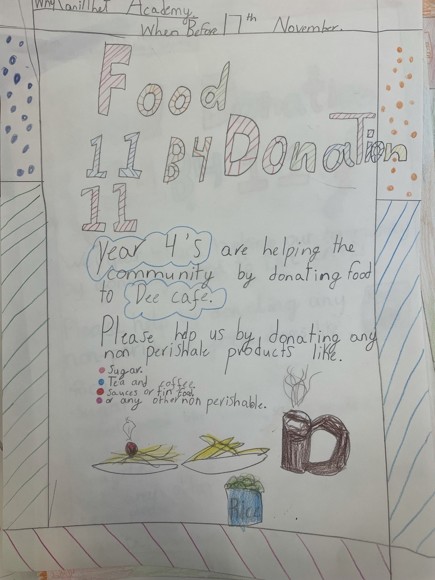 Academy
When Before 17th November.
Food
11 By Donation
11
Year 4's are helping the
community by donating food
to Dee cafe.
Please help us by donating any
non perishale products like.
Sugar.
Tea and coffee.
Sauces or tin food.
or any other non perishable.
Rice